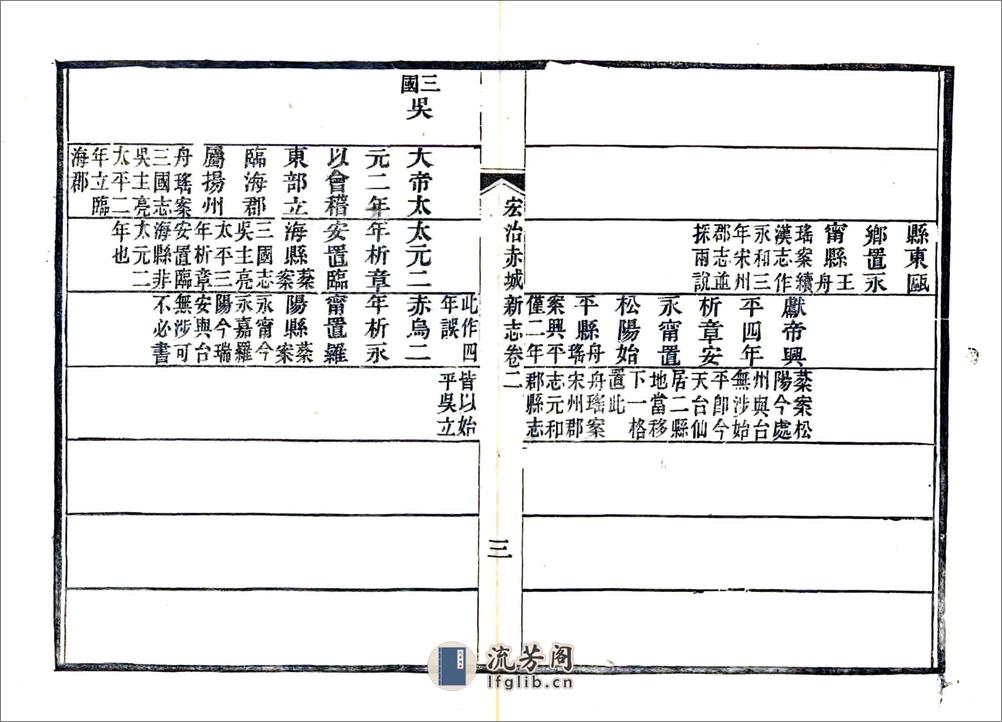 縣東甌
鄉置永
甯縣王舟
瑤案續
漢志作
永和三
年宋州
郡志並
採兩說
獻帝興
平四年
析章安
永甯置
松陽始
平縣舟瑤
案興平
僅二年
蔡案松
陽今處
州與台
無涉始
平卽今
天台仙
居二縣
地當移
下一格
置此
舟瑤案
宋州郡
志元和
郡縣志
宏治赤城新志卷二
三
此作四
年誤
皆以始
平吳立
三國吳
大帝太
元二年
以會稽
東部立
臨海郡
屬揚州
舟瑤案
三國志
吳主亮
太平二
年立臨
海郡
太元二
年析章
安置臨
海縣蔡案
三國志
吳主亮
太平三
年析章
安置臨
海縣非
太元二
年也
赤烏二
年析永
甯置羅
陽縣蔡案
永甯今
永嘉羅
陽今瑞
安與台
無涉可
不必書
流芳阁
lfglib.cn